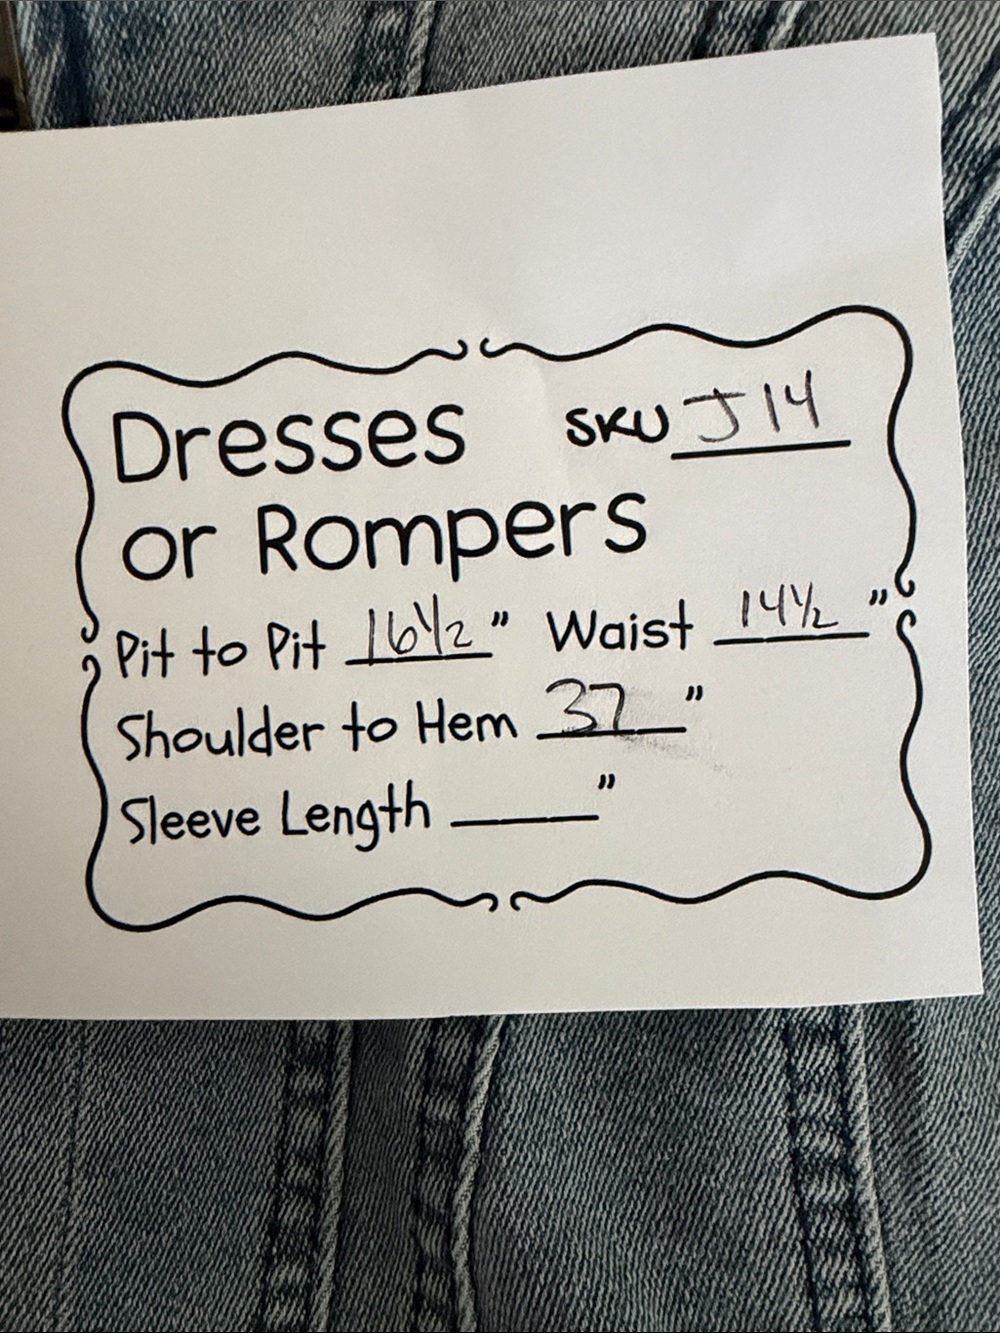 Dresses SKU J14
or Rompers
Pit to Pit 16½" Waist 14½"
Shoulder to Hem 37"
Sleeve Length ______"